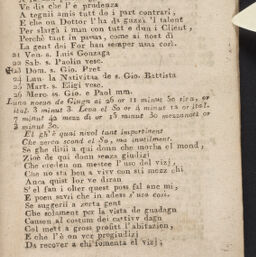 Ve dis che l' è prudenza
A tegnii amis tutt do i part contrari,
E che on Dottor l' ha da guzzà 'l talent
Per slargà i man con tutt e duu i Client,
Perchè tant in passaa, come ai nost dì
La gent dei For han semper usaa corì.
21 Ven. s. Luis Gonzaga
22 Sab. s. Paolin vesc.
23 Dom. s. Gio. Pret
24 Lun. la Nativitaa de s. Gio. Battista
25 Mart. s. Eligi vesc.
26 Mero. ss. Gio. e Paol mm.
Luna noeuva de Giugn ai 26 or 11 minut 30 sira, or
ital. 3 minut 3. Leva el So or 4 minut 12 or ital.
7 minut 42 mezz dì or 15 minut 30 mezzanott or
3 minut 30.
El gh' è quai nivol tant impertinent
Che zerca scond el So, ma inutilment.
Se ghe disii a qui donn che morba el mond,
Zioè de qui donn senza giudizi
Che creden on mestee l' uso del vizj,
Che no sta ben a vivv con sti mezz chì
Anca quist lor ve diran
S' el fan i olter quest poss fal anc mì,
E poeu savrì che in adess s' usa corì.
Se suggerii a zerta gent
Che solament per la vista de guadagn
Causen al costum dei cattivv dagn
Col mett a gross profitt l' abitazion,
E che l' è on ver pregiudizi
Da recover a chi fomenta el vizj,